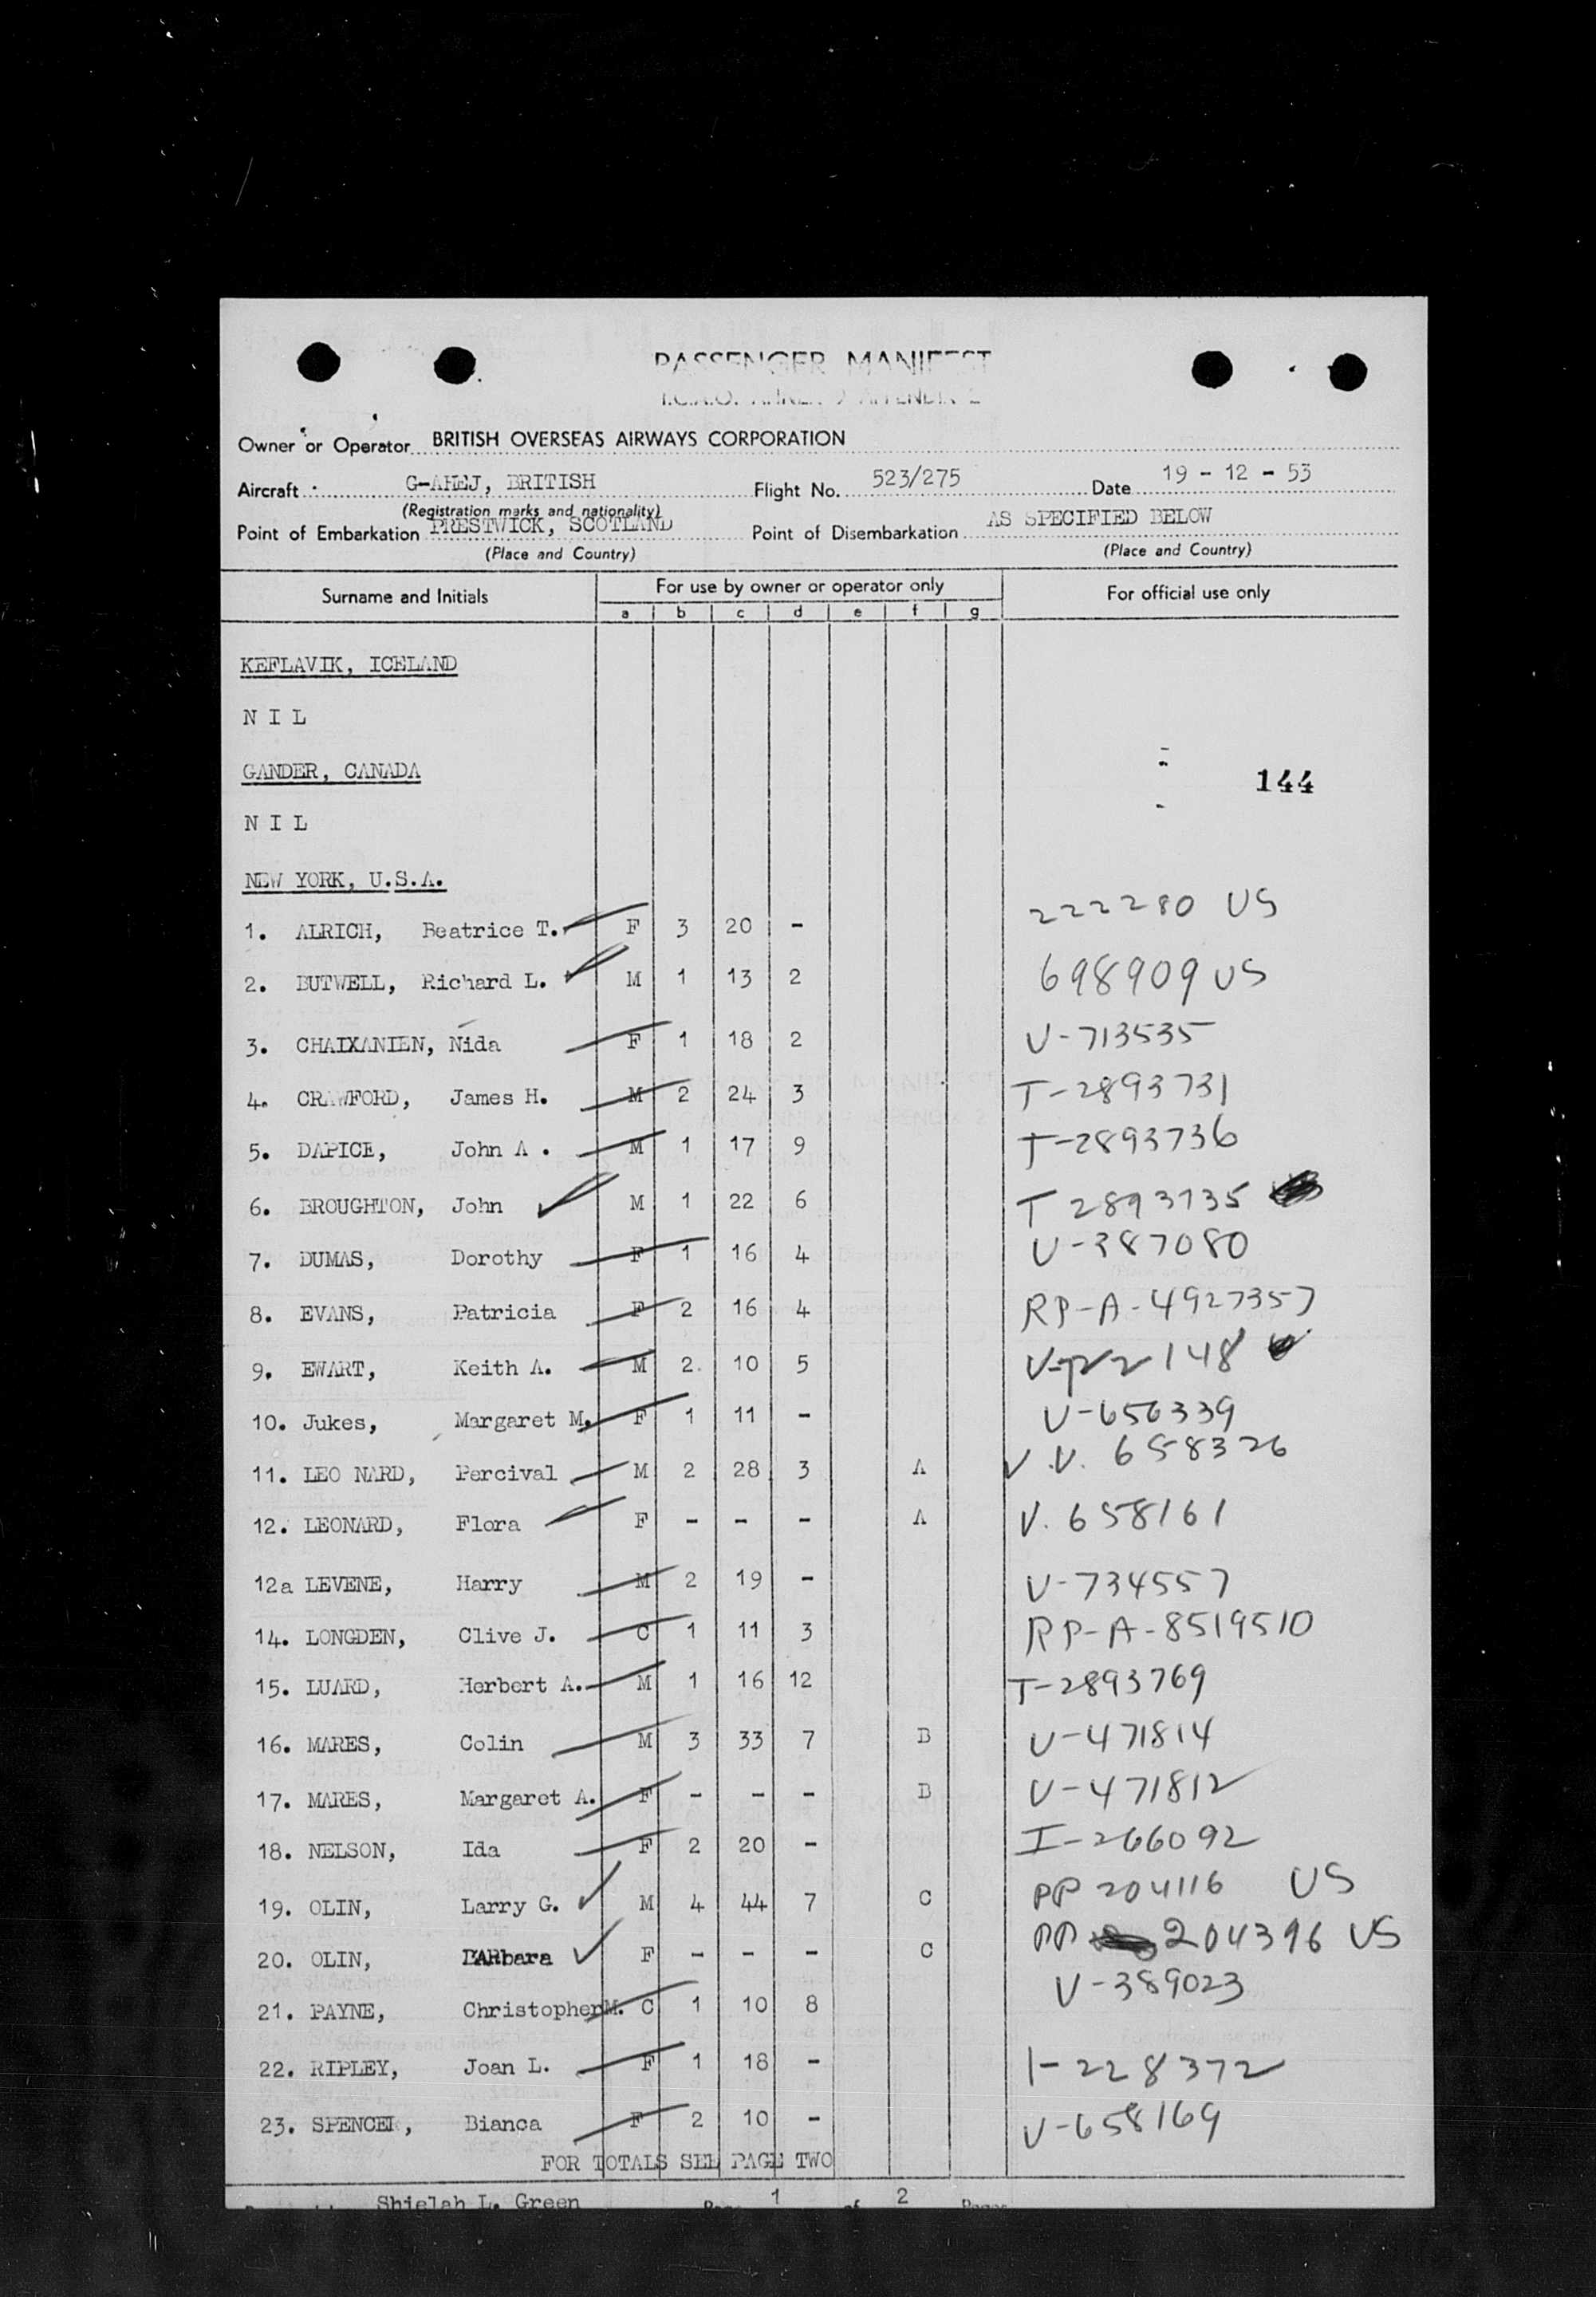 PASSENGER MANIFEST
I.C.A.O. ANNEX 9 APPENDIX 2
Owner or Operator BRITISH OVERSEAS AIRWAYS CORPORATION
Aircraft G-AHEJ, BRITISH Flight No. 523/275 Date 19 - 12 - 53
(Registration marks and nationality)
Point of Embarkation PRESTWICK, SCOTLAND Point of Disembarkation AS SPECIFIED BELOW
(Place and Country) (Place and Country)
Surname and Initials For use by owner or operator only For official use only
a b c d e f g
KEFLAVIK, ICELAND
N I L
GANDER, CANADA
144
N I L
NEW YORK, U.S.A.
1. ALRICH, Beatrice T. F 3 20 - 222280 US
2. BUTWELL, Richard L. M 1 13 2 698909 US
3. CHAIXANIEN, Nida F 1 18 2 V-713535
4. CRAWFORD, James H. M 2 24 3 T-2893731
5. DAPICE, John A . M 1 17 9 T-2893736
6. BROUGHTON, John M 1 22 6 T 2893735
7. DUMAS, Dorothy F 1 16 4 V-387080
8. EVANS, Patricia F 2 16 4 RP-A-4927357
9. EWART, Keith A. M 2. 10 5
10. Jukes, Margaret M. F 1 11 - V-656339
11. LEO NARD, Percival M 2 28 3 A V.V. 658326
12. LEONARD, Flora F - - - A V. 658161
12a LEVENE, Harry M 2 19 - V-734557
14. LONGDEN, Clive J. C 1 11 3 RP-A-8519510
15. LUARD, Herbert A. M 1 16 12 T-2893769
16. MARES, Colin M 3 33 7 B V-471814
17. MARES, Margaret A. F - - - B V-471812
18. NELSON, Ida F 2 20 - I-266092
19. OLIN, Larry G. M 4 44 7 C PP 204116 US
20. OLIN, BARbara F - - - C PP 204396 US
21. PAYNE, Christopher M. C 1 10 8 V-389023
22. RIPLEY, Joan L. F 1 18 - I-228372
23. SPENCER, Bianca F 2 10 - V-658169
FOR TOTALS SEE PAGE TWO
Shielah L. Green Page 1 of 2 Pages